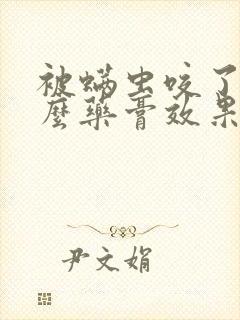 被螨虫咬了
麽药膏效果
尹文娟